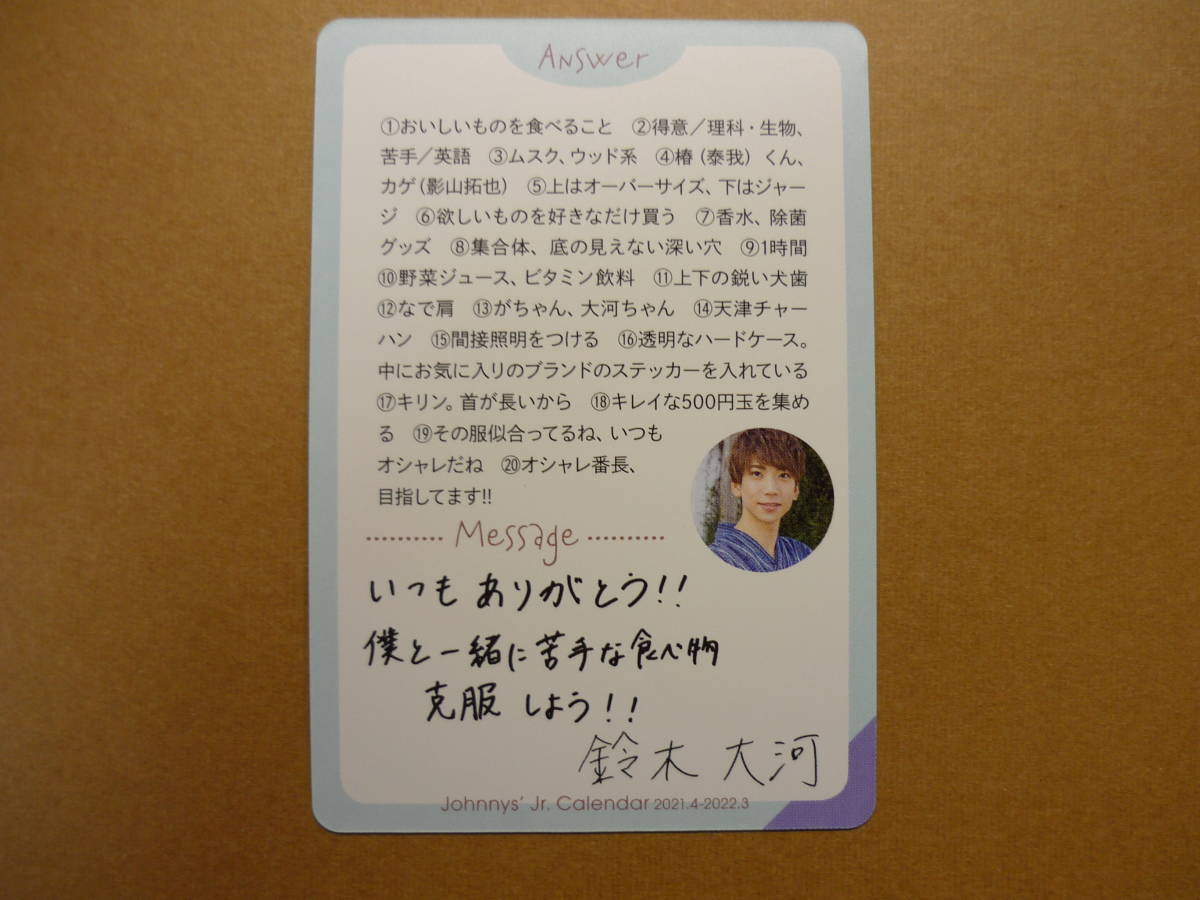 Answer
①おいしいものを食べること　②得意／理科・生物、
苦手／英語　③ムスク、ウッド系　④椿（泰我）くん、
カゲ（影山拓也）　⑤上はオーバーサイズ、下はジャー
ジ　⑥欲しいものを好きなだけ買う　⑦香水、除菌
グッズ　⑧集合体、底の見えない深い穴　⑨1時間
⑩野菜ジュース、ビタミン飲料　⑪上下の鋭い犬歯
⑫なで肩　⑬がちゃん、大河ちゃん　⑭天津チャー
ハン　⑮間接照明をつける　⑯透明なハードケース。
中にお気に入りのブランドのステッカーを入れている
⑰キリン。首が長いから　⑱キレイな500円玉を集め
る　⑲その服似合ってるね、いつも
オシャレだね　⑳オシャレ番長、
目指してます!!
Message
いつもありがとう!!
僕と一緒に苦手な食べ物
克服しよう!!
鈴木 大河
Johnnys' Jr. Calendar 2021.4-2022.3